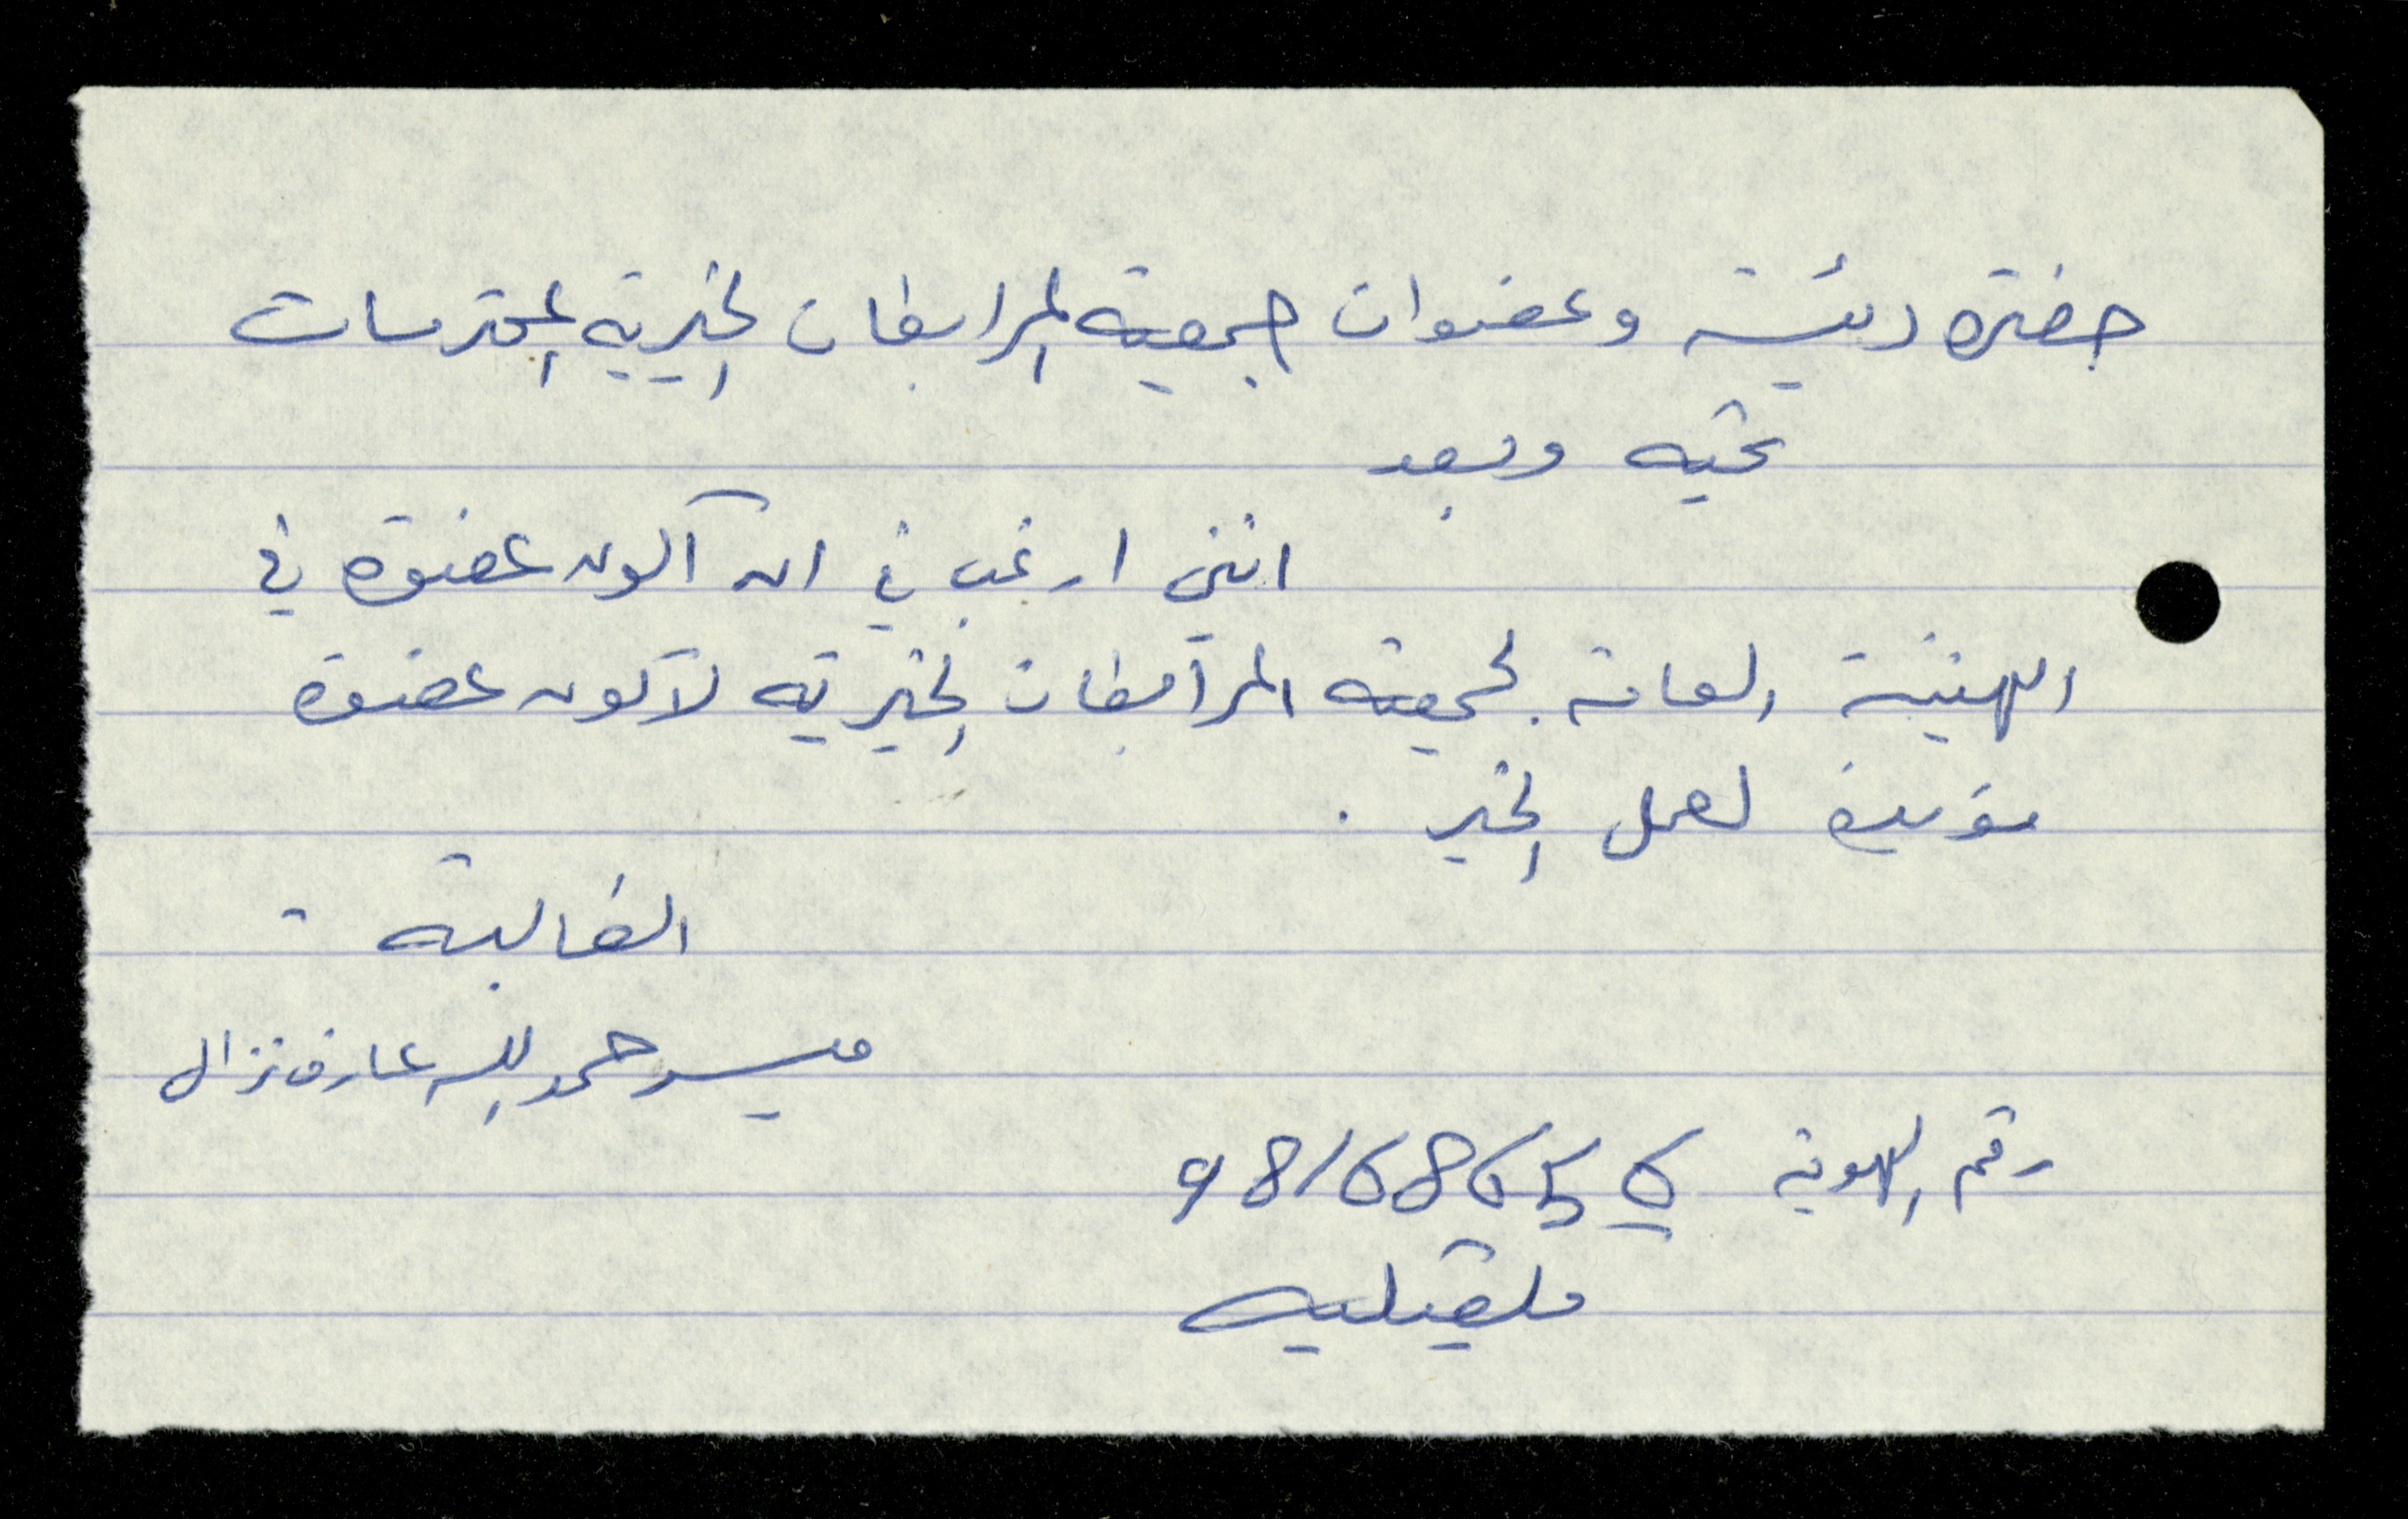 حضرة رئيسة وعضوات جمعية المرابطات الخيرية المحترمات
تحيه وبعد
انني ارغب في ان آكون عضوة في
الهيئة العامة لجمعية المرابطات الخيرية لآكون عضوة
مؤيدة لعمل الخير .
الطالبة
ميسر حمد الله عارف نزال
رقم الهوية
قلقيليه